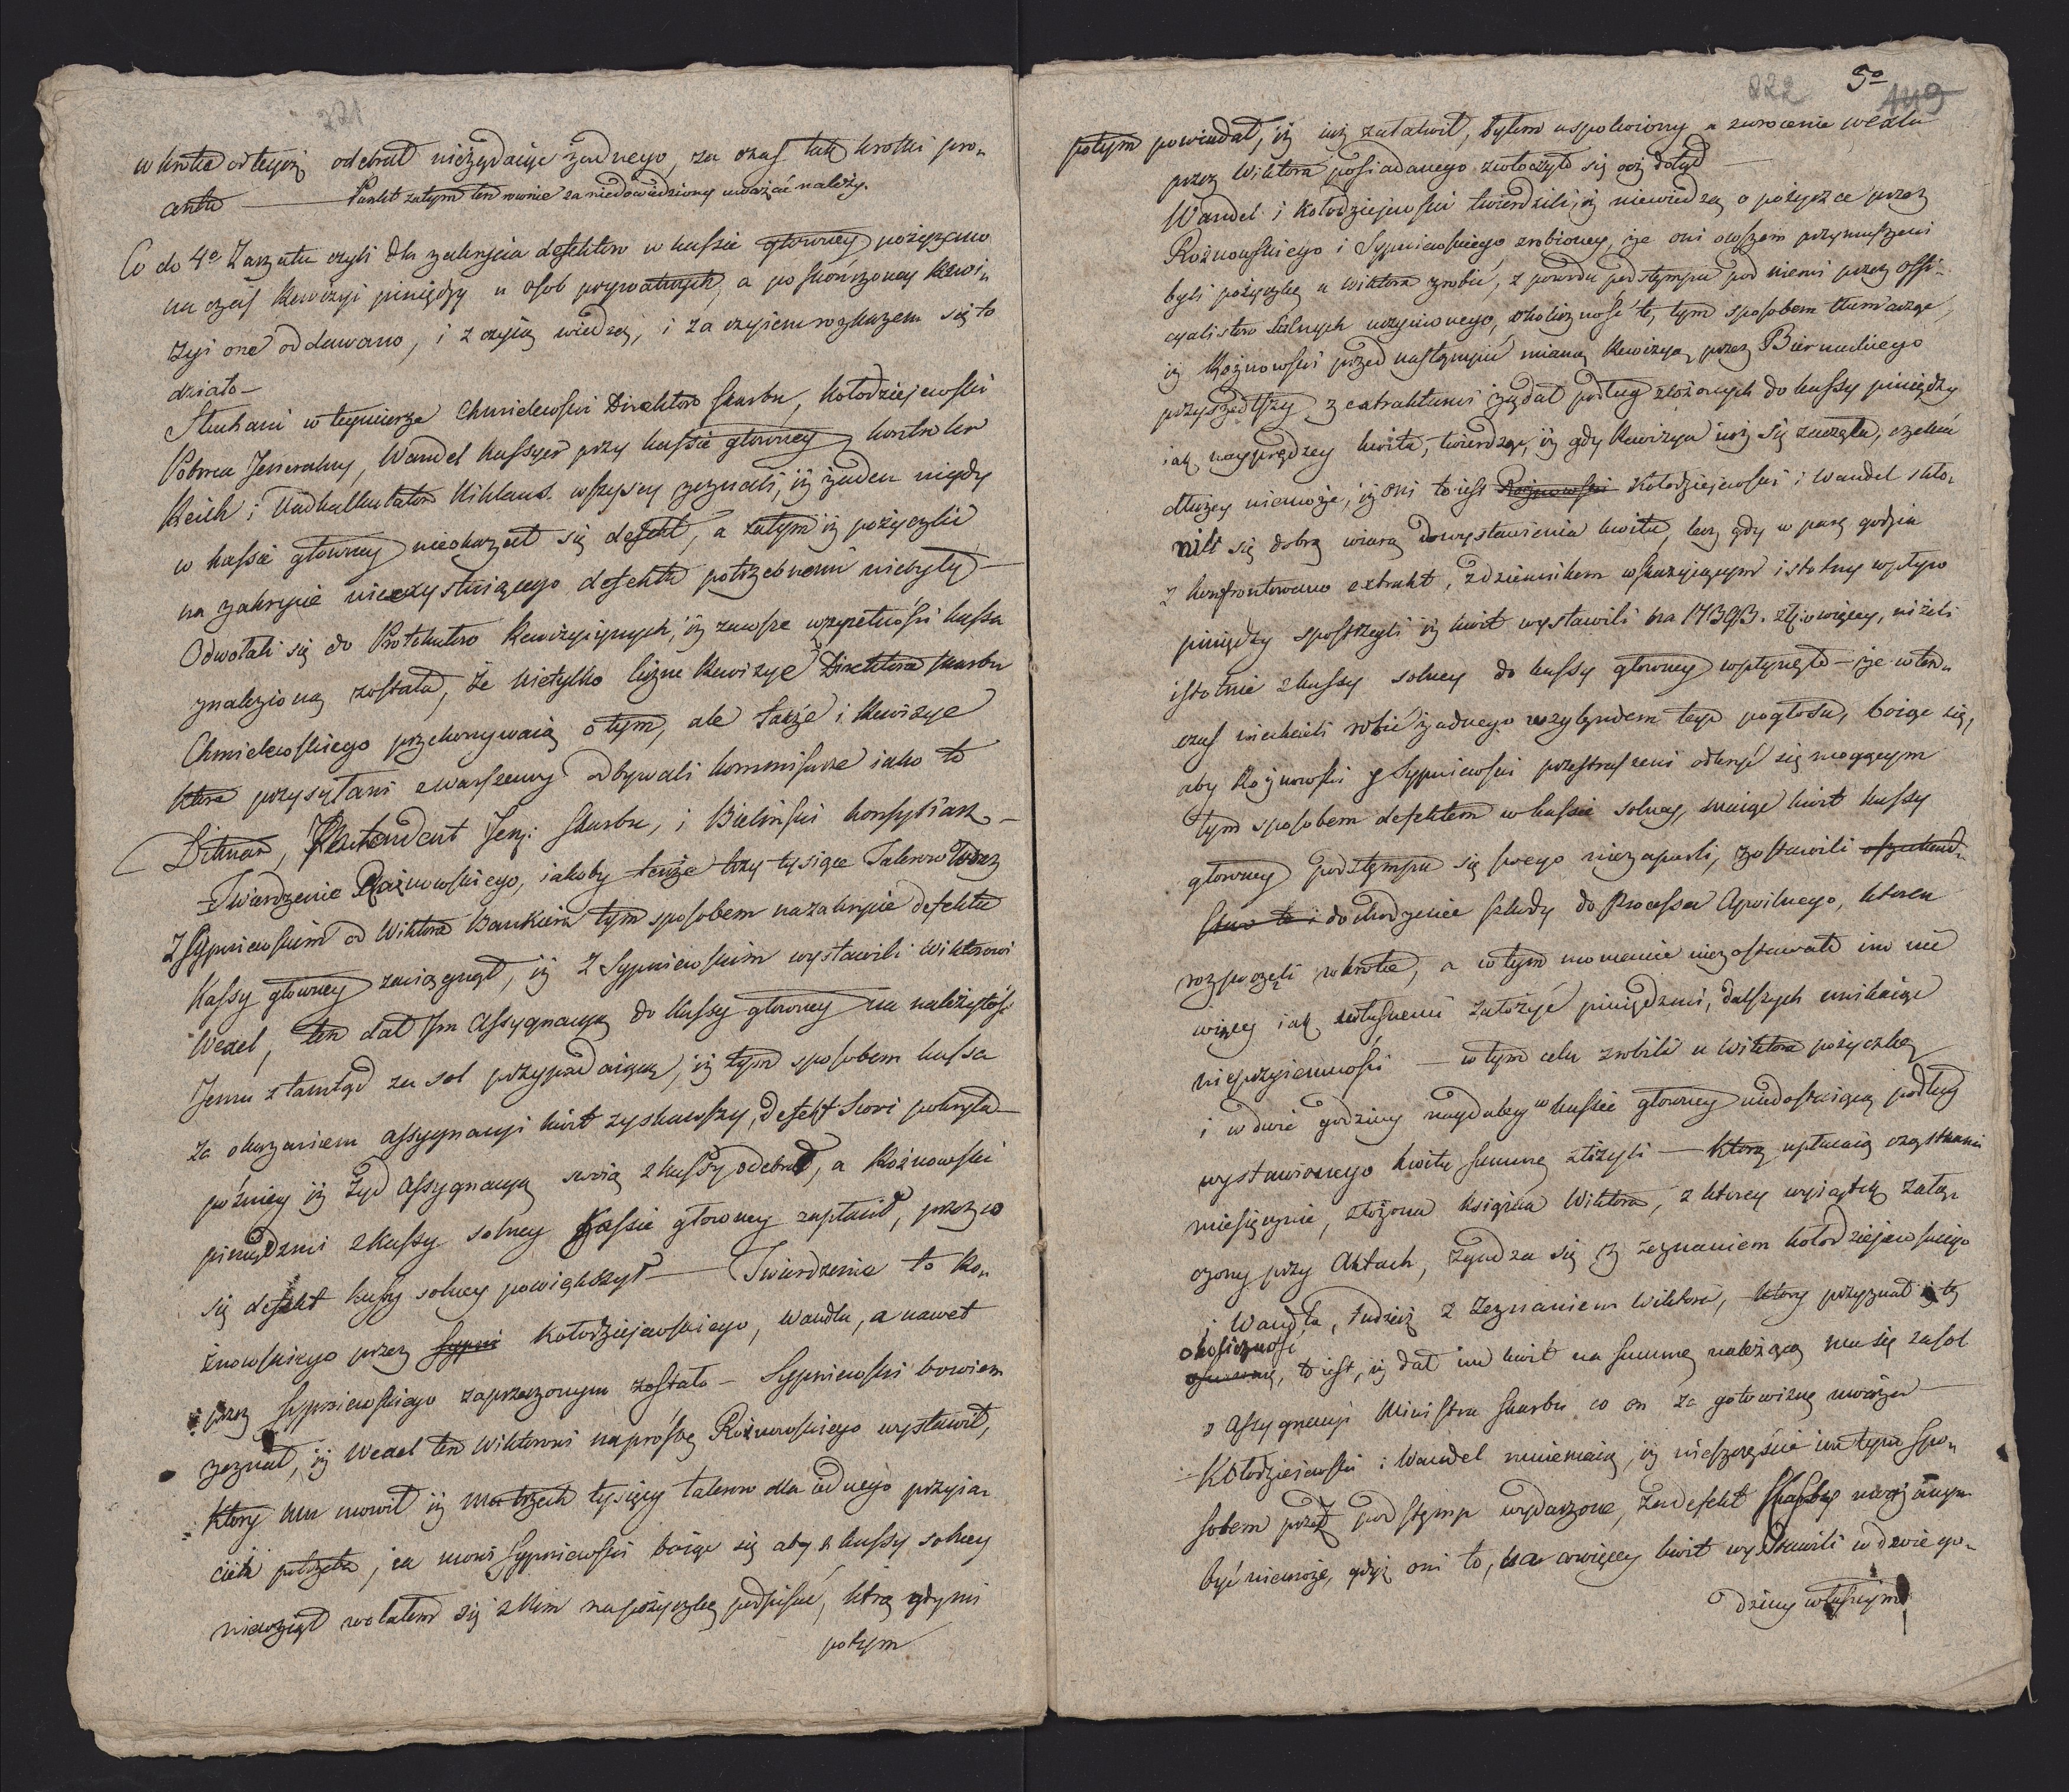 221
wkrotce od tegoż odebrał nieżądaiąc żadnego, za czas tak krotki pro„
centu ——— Punkt zatym ten rownie za niedowiedziony uważać należy.
Co do 4º Zarzutu czyli dla zakrycia defektow w kassie głowney pożyczano
na czas Rewizyi pieniędzy u osob prywatnych, a po skończoney Rewi„
zyi one oddawano, i z czyią wiedzą, i za czyiem rozkazem się to
działo —
Słuchani w teymierze Chmielewski Direktor skarbu, Kołodziejewski
Poborca Jeneralny, Wandel kassyer przy kassie głowney kontroler
Reich i Nadkalkulator Niklaus. wszyscy zeznali, iż żaden nigdy
w kassie głowney nieokazał się defekt, a zatym iż pożyczki
na zakrycie nieexystuiącego defektu potrzebnemi niebyły —
Odwołali się do Protokułow Rewizyinych, iż zawsze wzupełności kassa
znalezioną została, że nietylko liczne Rewizye Direktora skarbu
Chmielewskiego przekonywaią o tym, ale także i Rewizye
ktore przysyłani z warszawy odbywali kommissarze iako to
Ditmar, Jntendent Jenj: skarbu, i Bieliński konsyliarz —
Twierdzenie Rożnowskiego, iakoby tenże trzy tysiące Talerow wraz
z Sypniewskim od Wiktora Bankiera tym sposobem na zakrycie defektu
Kassy głowney zaciągnął, iż z Sypniewskim wystawili Wiktorowi
Wexel, ten dał Jm Assygnacyą do Kassy głowney na należytość
Jemu z tamtąd za sol przypadaiącą, iż tym sposobem kassa
za okazaniem assygnacyi kwit zyskawszy, defekt swoi pokryła —
pożniey iż żyd Assygnacyą swoią z kassy odebrał, a Rożnowski
pieniędzmi z Kassy solney Kassie głowney zapłacił, przez co
się defekt kassy solney powiększył — Twierdzenie to Ro„
żnowskiego przez Sypni Kołodziejewskiego, Wandla, a nawet
i przez Sypniewskiego zaprzeczonym zostało — Sypniewski bowiem
zeznał, iż Wexel ten Wiktorowi na prośbę Rożnowskiego wystawił,
ktory mu mowił iż mu trzech tysięcy talerow dla iednego przyia„
ciela potrzeba, ia mowi Sypniewski boiąc się aby z kassy solney
niewziął wolałem się z Nim na pożyczkę podpisać, ktorą gdy mi
potym

222 5º 149
potym powiadał, iż iuż załatwił, byłem uspokoiony a zwrocenie wexlu
przez Wiktora posiadanego zwłoczyło się aż dotąd —
Wandel i Kołodziejewski twierdzili, iż niewiedzą o pożyczce przez
Rożnowskiego i Sypniewskiego zrobioney, że oni owszem przymuszeni
byli pożyczkę u Wiktora zrobić, z powodu podstępu pod niemi przez offi„
cyalistow solnych uczynionego, okoliczność tę, tym sposobem tłumacząc,
iż Rożnowski przed nastąpić mianą Rewizyą przez Biernackiego
przyszedłszy z extraktami żądał podług złożonych do kassy pieniędzy
iak nayprędzey kwitu, twierdząc, iż gdy Rewizya iuż się zaczęła, czekać
dłużey niemoże, iż oni to iest Rożnowski Kołodziejewski i Wandel skło„
nili się dobrą wiarą do wystawienia kwitu, lecz gdy w parę godzin
z konfrontowano extrakt, z dziennikiem wskazuiącym istotny wpływ
pieniędzy spostrzegli iż kwit wystawili na 17393. złł: więcey, niżeli
istotnie z kassy solney do kassy głowney wpłynęło — że wten„
czas niechcieli robić żadnego względem tego pogłosu, boiąc się,
aby Rożnowski z Sypniewski przestraszeni odkryć się mogącym
tym sposobem defektem w kassie solney, maiąc kwit kassy
głowney podstępu się swego niezaparli, zostawili oszukań„
stwo to i dochodzenie szkody do Processu Cywilnego, ktoren
rozpoczęli wkrotce, a wtym momencie niezostawało im nic
więcey iak własnemi założyć pieniędzmi, dalszych unikaiąc
nieprzyiemności — w tym celu zrobili u Wiktora pożyczkę
i w dwie godziny naydaley w kassie głowney niedostaiącą podług
wystawionego kwitu summę złożyli — ktorą upłacaią cząstkami
miesięcznie, złożona książka Wiktora, z ktorey wyiątek załą„
czony przy Aktach, zgadza się z zeznaniem Kołodziejewskiego
i Wandla, tudzież z Zeznaniem Wiktora, ktory przyznał i tę
okoliczność
, to iest, iż dał im kwit na summę należącą mu się za sol
z assygnacyi Ministra skarbu co on za gotowiznę uważa —
Kołodziejewski i Wandel mniemaią, iż nieszczęście im tym spo„
sobem przez podstęp wydarzone, za defekt Kassy uważanym
być niemoże, gdyż oni to, na co więcey kwit wystawili w dwie go„
dziny własnymi